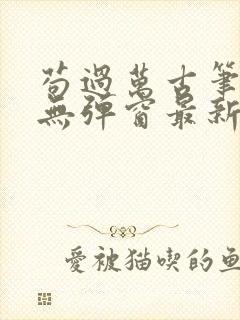 苟過萬古筆
無彈窗最新
愛被猫喫的魚